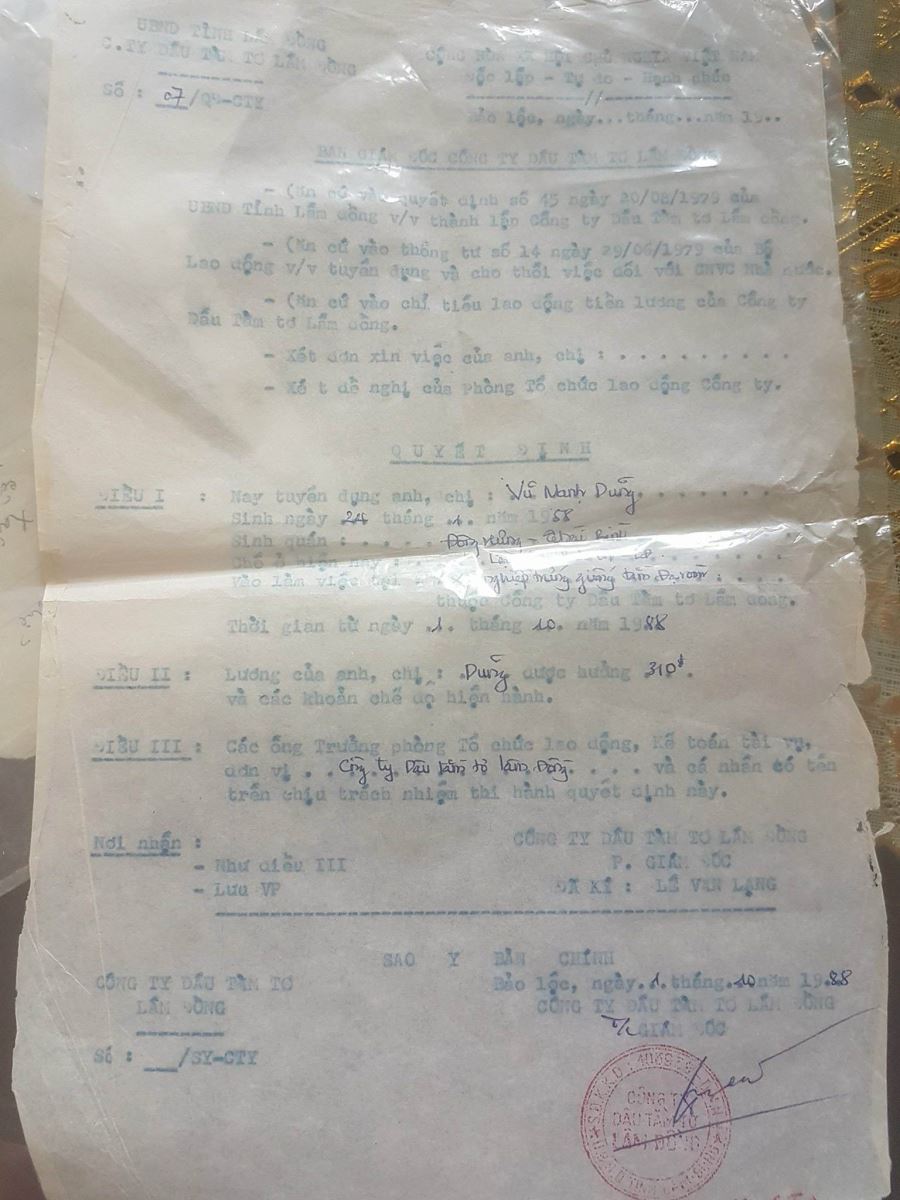 UBND TỈNH LÂM ĐỒNG
C.TY DÂU TẰM TƠ LÂM ĐỒNG
Số : 07/QĐ-CTY
CỘNG HÒA XÃ HỘI CHỦ NGHĨA VIỆT NAM
Độc lập - Tự do - Hạnh phúc
Bảo lộc, ngày...tháng...năm 19..
BAN GIÁM ĐỐC CÔNG TY DÂU TẰM TƠ LÂM ĐỒNG
- Căn cứ vào quyết định số 45 ngày 20/08/1979 của
UBND Tỉnh Lâm đồng v/v thành lập Công ty Dâu Tằm tơ Lâm đồng.
- Căn cứ vào thông tư số 14 ngày 29/06/1979 của Bộ
Lao động v/v tuyển dụng và cho thôi việc đối với CNVC Nhà nước.
- Căn cứ vào chỉ tiêu lao động tiền lương của Công ty
Dâu Tằm tơ Lâm đồng.
- Xét đơn xin việc của anh, chị : . . . . . . . . .
- Xé t đề nghị của phòng Tổ chức lao động Công ty.
QUYẾT ĐỊNH
ĐIỀU I : Nay tuyển dụng anh, chị : Vũ Mạnh Dũng. . . . . . .
Sinh ngày 24 tháng .1. năm 1958
Sinh quán : . . . . Đông Hưng - Thái Bình
Chỗ ở hiện nay :
Vào làm việc tại nghiệp trứng giống tằm
thuộc Công ty Dâu Tằm tơ Lâm đồng.
Thời gian từ ngày .1. tháng 10. năm 1988
ĐIỀU II : Lương của anh, chị : Dũng được hưởng 310đ.
và các khoản chế độ hiện hành.
ĐIỀU III : Các ông Trưởng phòng Tổ chức lao động, Kế toán tài vụ,
đơn vị . . Công ty Dâu tằm tơ Lâm Đồng. . . . và cá nhân có tên
trên chịu trách nhiệm thi hành quyết định này.
Nơi nhận :
- Như điều III
- Lưu VP
CÔNG TY DÂU TẰM TƠ LÂM ĐỒNG
P. GIÁM ĐỐC
ĐÃ KÍ : LÊ VĂN LẠNG
SAO Y BẢN CHÍNH
CÔNG TY DÂU TẰM TƠ
LÂM ĐỒNG
Số : ___/SY-CTY
Bảo lộc, ngày.1.tháng.10năm 1988
CÔNG TY DÂU TẰM TƠ LÂM ĐỒNG
T/L GIÁM ĐỐC
CÔNG TY
DÂU TẰM TƠ
LÂM ĐỒNG